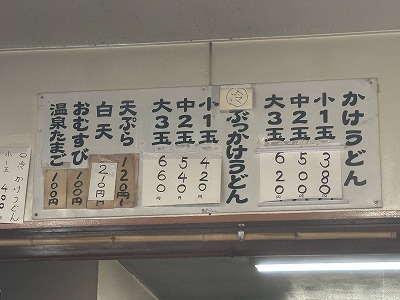 かけうどん
小1玉 380
中2玉 500
大3玉 620
冷
ぶっかけうどん
小1玉 420
中2玉 540
大3玉 660
天ぷら 120円
白天 210円
おむすび 100円
温泉たまご 100円
冷かけうどん
小1玉 400